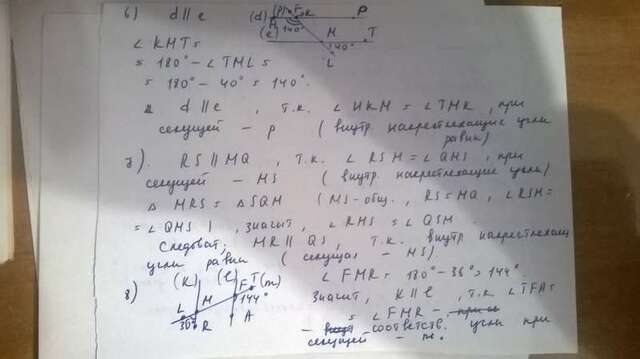 6) d || e
(d) (p) F K P
H 140°
(e) M T
40°
L
∠ KMT =
= 180° - ∠ TML =
= 180° - 40° = 140°.
d || e , т.к. ∠ HKM = ∠ TMK , при
секущей - p ( внутр. накрестлежащие углы
равны)
7). RS || MQ , т.к. ∠ RSM = ∠ QMS , при
секущей - MS ( внутр. накрестлежащие углы)
△ MRS = △ SQM ( MS - общ. , RS = MQ , ∠ RSM =
= ∠ QMS ) , значит , ∠ RMS = ∠ QSM
Следоват, MR || QS , т.к. внутр. накрестлежащ.
углы равны ( секущая - MS).
8) (K) (l) F T (m) ∠ FMR = 180° - 36° = 144°.
L M 144°
R A
Значит, K || l , т.к. ∠ TFA =
= ∠ FMR -
- соответств. углы при
секущей - m.